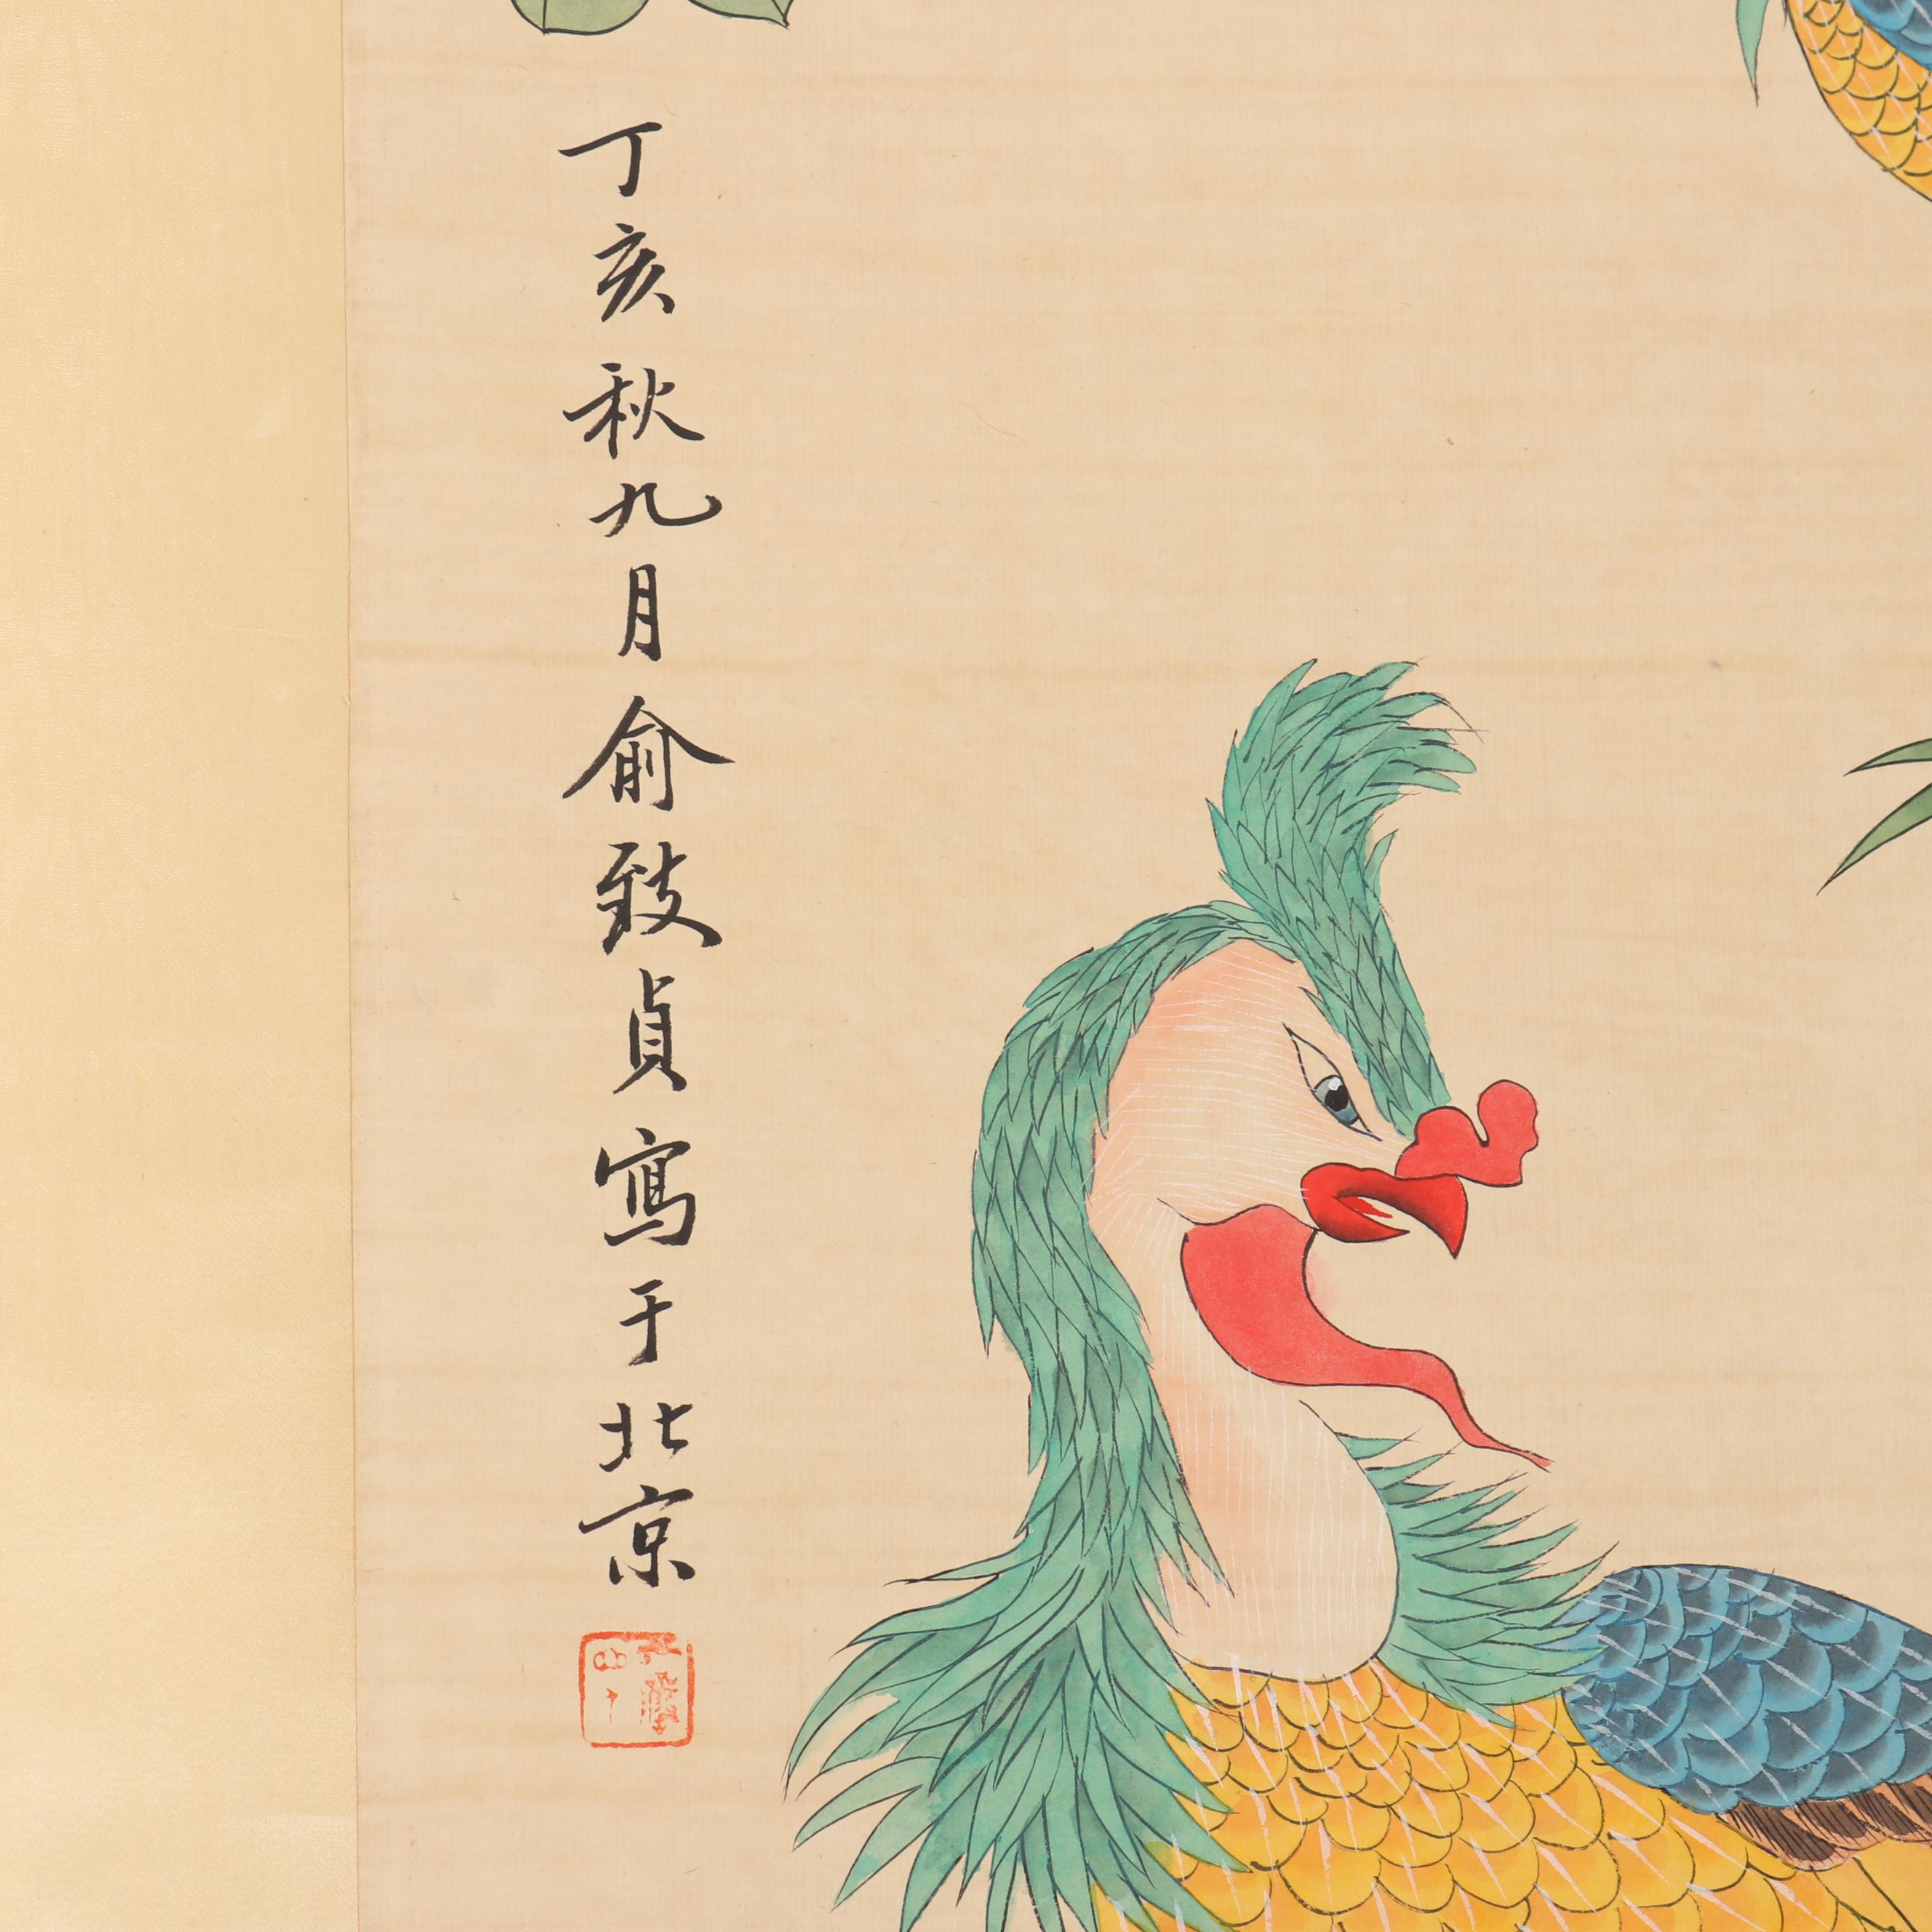 丁亥秋九月俞致貞寫于北京